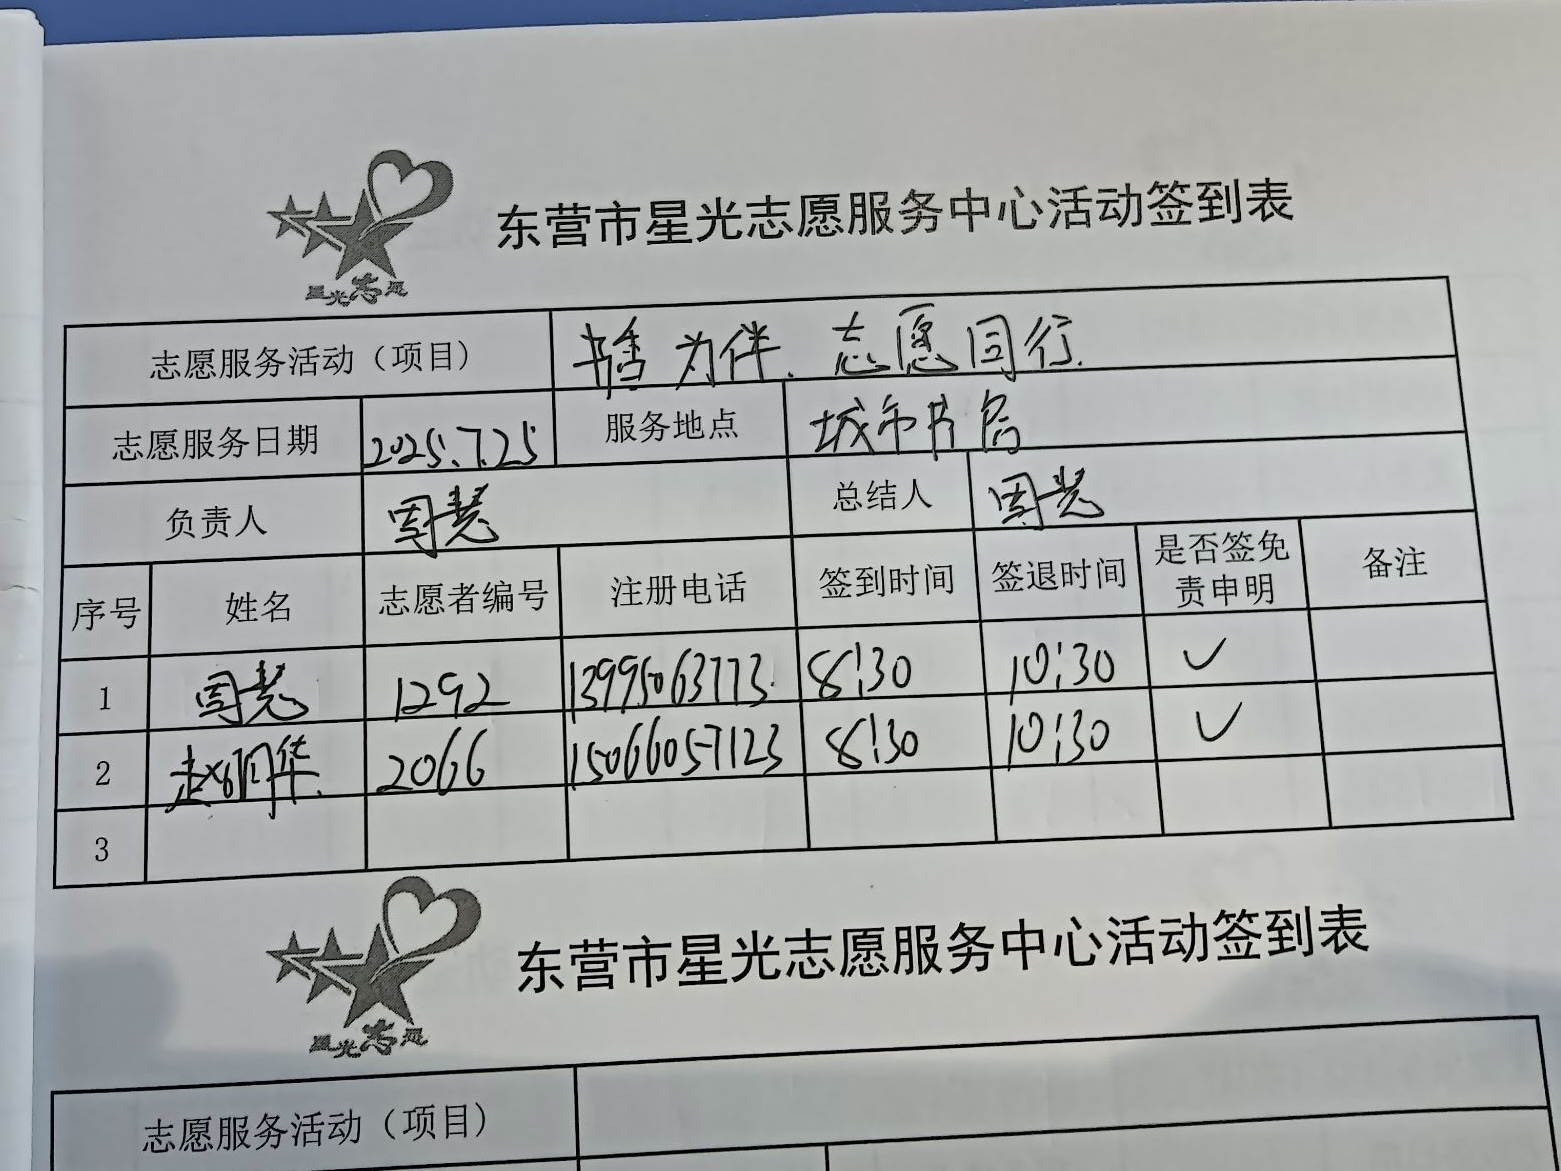 东营市星光志愿服务中心活动签到表
星光志愿
志愿服务活动（项目） 书香为伴、志愿同行.
志愿服务日期 2025.7.25 服务地点 城市书房
负责人 周慧 总结人 周慧
序号 姓名 志愿者编号 注册电话 签到时间 签退时间 是否签免责申明 备注
1 周慧 1292 13995063773 8:30 10:30 ✓
2 2066 15066057123 8:30 10:30 ✓
3
东营市星光志愿服务中心活动签到表
星光志愿
志愿服务活动（项目）